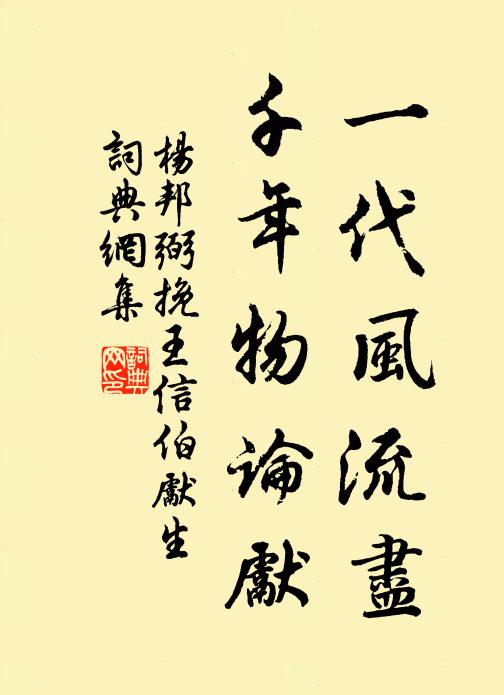 一代風流盡
千年物論獻
楊邦弼挽王信伯獻生
詞典網集
詞典
网印